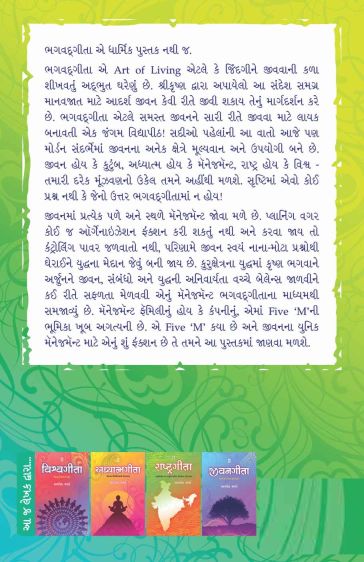 ભગવદ્ગીતા એ ધાર્મિક પુસ્તક નથી જ.
ભગવદ્ગીતા એ Art of Living એટલે કે જિંદગીને જીવવાની કળા
શીખવતું અદ્ભુત ઘરેણું છે. શ્રીકૃષ્ણ દ્વારા અપાયેલો આ સંદેશ સમગ્ર
માનવજાત માટે આદર્શ જીવન કેવી રીતે જીવી શકાય તેનું માર્ગદર્શન કરે
છે. ભગવદ્ગીતા એટલે સમસ્ત જીવનને સારી રીતે જીવવા માટે લાયક
બનાવતી એક જંગમ વિદ્યાપીઠ! સદીઓ પહેલાંની આ વાતો આજે પણ
મોર્ડન સંદર્ભમાં જીવનના અનેક ક્ષેત્રે મૂલ્યવાન અને ઉપયોગી બને છે.
જીવન હોય કે કુટુંબ, અધ્યાત્મ હોય કે મૅનેજમૅન્ટ, રાષ્ટ્ર હોય કે વિશ્વ -
તમારી દરેક મૂંઝવણનો ઉકેલ તમને અહીંથી મળશે. સૃષ્ટિમાં એવો કોઈ
પ્રશ્ન નથી કે જેનો ઉત્તર ભગવદ્ગીતામાં ન હોય!
જીવનમાં પ્રત્યેક પળે અને સ્થળે મૅનેજમૅન્ટ જોવા મળે છે. પ્લાનિંગ વગર
કોઈ જ ઑર્ગેનાઈઝેશન ફંક્શન કરી શકતું નથી અને કરવા જાય તો
કંટ્રોલિંગ પાવર જળવાતો નથી, પરિણામે જીવન સ્વયં નાના-મોટા પ્રશ્નોથી
ઘેરાઈને યુદ્ધના મેદાન જેવું બની જાય છે. કુરુક્ષેત્રના યુદ્ધમાં કૃષ્ણ ભગવાને
અર્જુનને જીવન, સંબંધો અને યુદ્ધની અનિવાર્યતા વચ્ચે બેલેન્સ જાળવીને
કઈ રીતે સફળતા મેળવવી એનું મૅનેજમૅન્ટ ભગવદ્ગીતાના માધ્યમથી
સમજાવ્યું છે. મૅનેજમૅન્ટ ફૅમિલીનું હોય કે કંપનીનું, એમાં Five ‘M’ની
ભૂમિકા ખૂબ અગત્યની છે. એ Five ‘M’ કયા છે અને જીવનના યુનિક
મૅનેજમૅન્ટ માટે એનું શું ફંક્શન છે તે તમને આ પુસ્તકમાં જાણવા મળશે.
આ જ લેખક દ્વારા...
વિશ્વગીતા
અધ્યાત્મગીતા
રાષ્ટ્રગીતા
જીવનગીતા